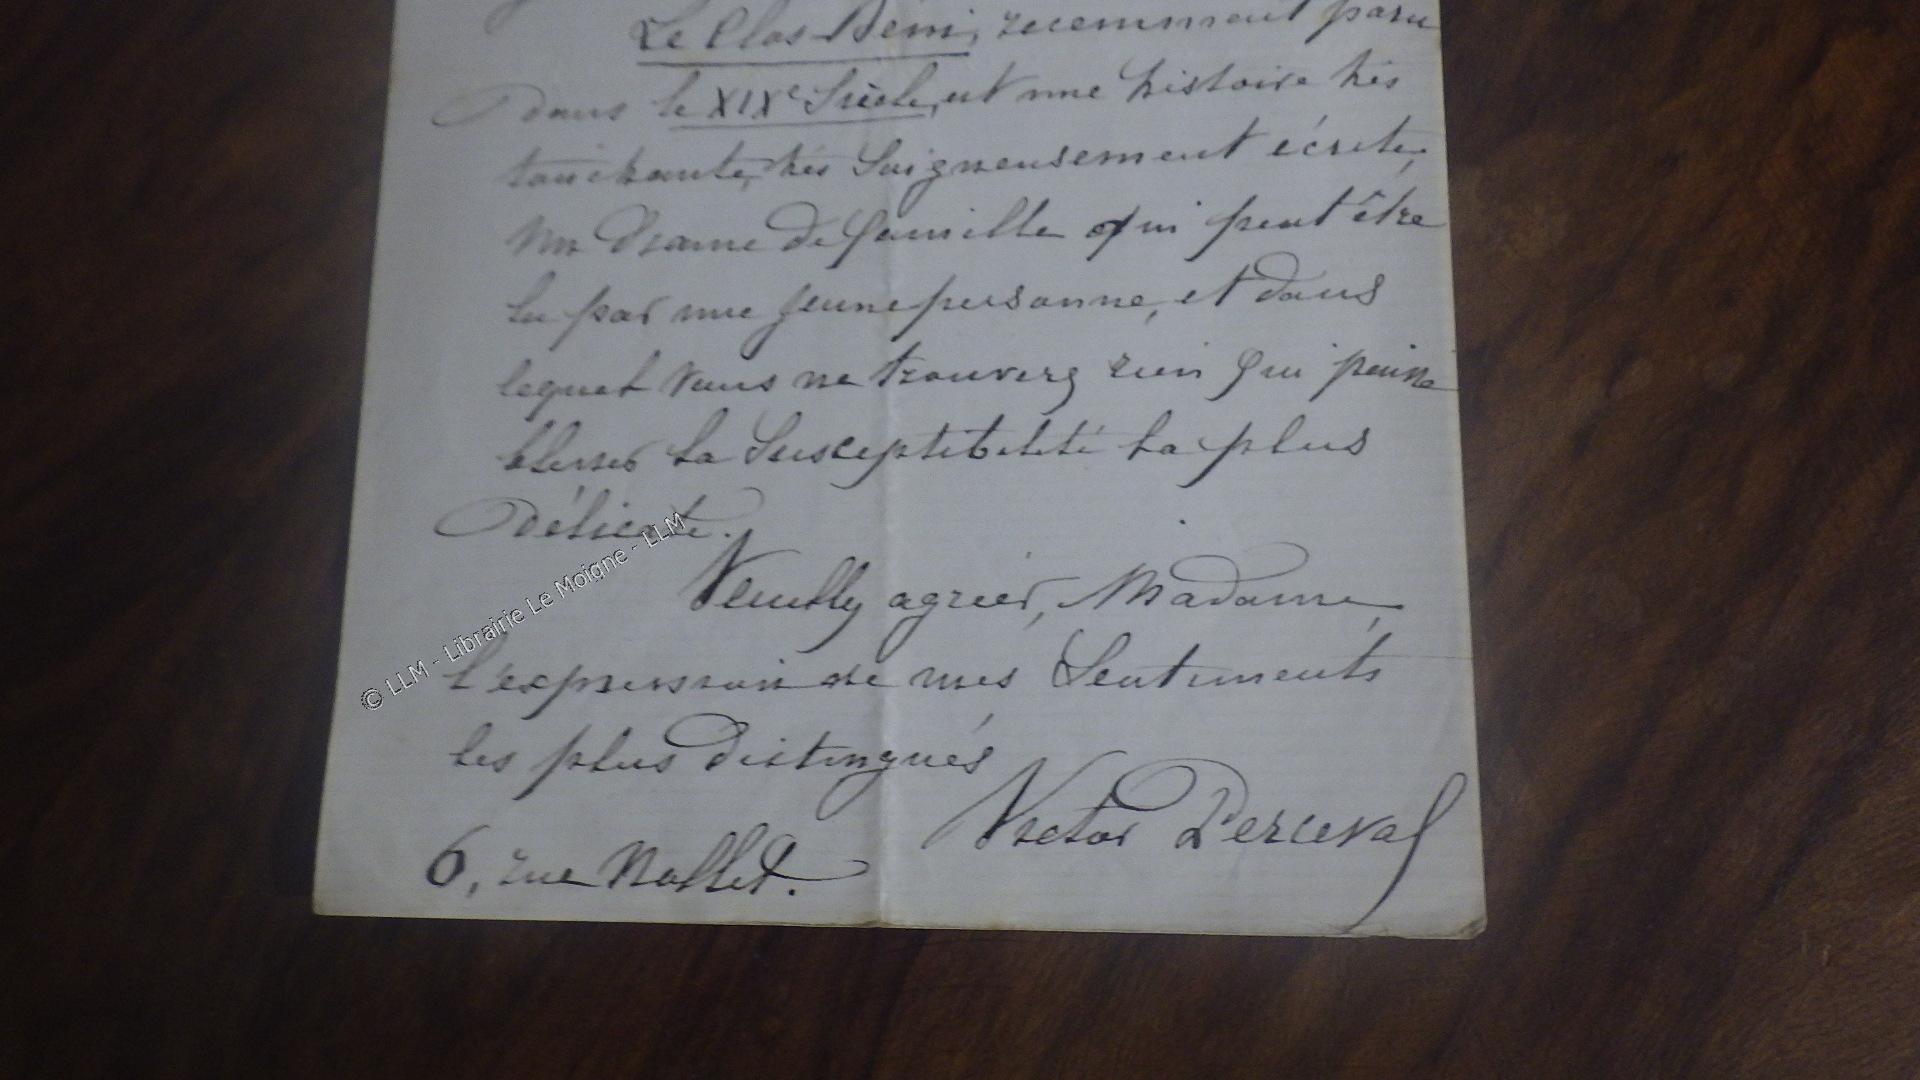 Le Clos-Béni, récemment paru
dans le XIXe Siècle, est une histoire très
touchante, très soigneusement écrite,
un drame de famille qui peut être
lu par une jeune personne, et dans
lequel vous ne trouverez rien qui puisse
blesser la susceptibilité la plus
délicate.
Veuillez agréer, Madame,
l'expression de mes sentiments
les plus distingués
Victor Perceval
6, rue Nollet.
© LLM - Librairie Le Moigne - LLM